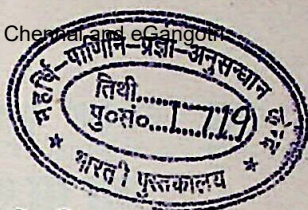 Chennai and eGangotri
महर्षि-पाणिनि-प्रज्ञा-अनुसन्धान केन्द्र
तिथी..........
पु०सं०...1719
* भारती पुस्तकालय *